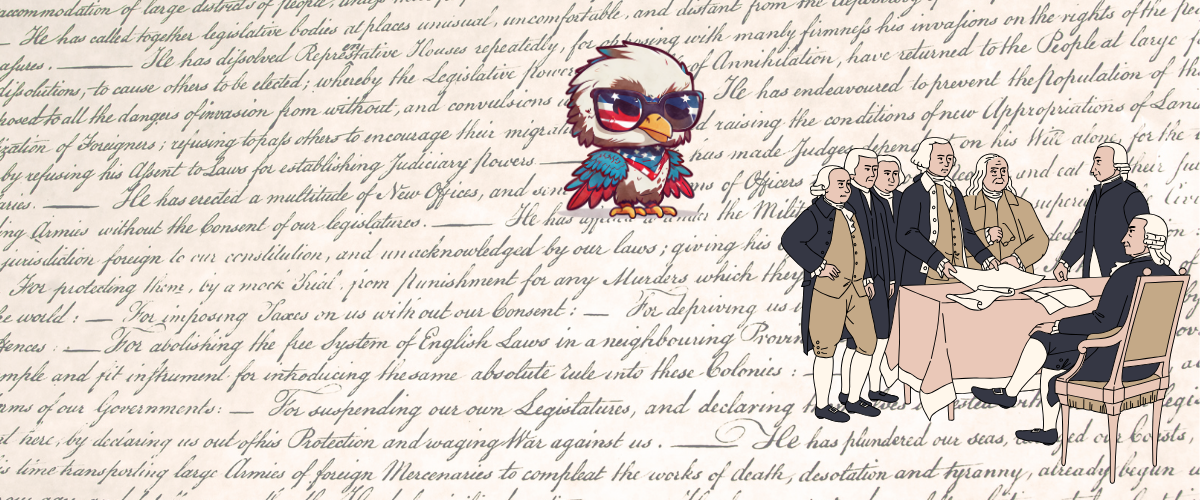 accommodation of large districts of people, unless those people
uncomfortable, and distant from the depository of
He has called together legislative bodies at places unusual, with manly firmness his invasions on the rights of the people
asures. — He has dissolved Representative Houses repeatedly, for opposing
of Annihilation, have returned to the People at large for
dissolutions, to cause others to be elected; whereby the Legislative powers He has endeavoured to prevent the population of
hosed to all the dangers of invasion from without, and convulsions raising the conditions of new Appropriations of Lan
zation of Foreigners; refusing to pass others to encourage their migrati
by refusing his Assent to Laws for establishing Judiciary powers — has made Judges depend on his Will alone for the
aries. — He has erected a multitude of New Offices, and of Officers
ng Armies without the Consent of our legislatures. — He has the Milit
jurisdiction foreign to our constitution, and unacknowledged by our laws; giving his
For protecting them, by a mock Trial, from Punishment for any Murders which they
he world : — For imposing Taxes on us without our Consent : — For depriving us
fences : — For abolishing the free System of English Laws in a neighbouring Provin
mple and fit instrument for introducing the same absolute rule into these Colonies :
rms of our Governments: — For suspending our own Legislatures, and declaring
d here, by declaring us out of his Protection and waging War against us. — He has plundered our seas, our Coasts,
is time transporting large Armies of foreign Mercenaries to compleat the works of death, desolation and tyranny, already begun